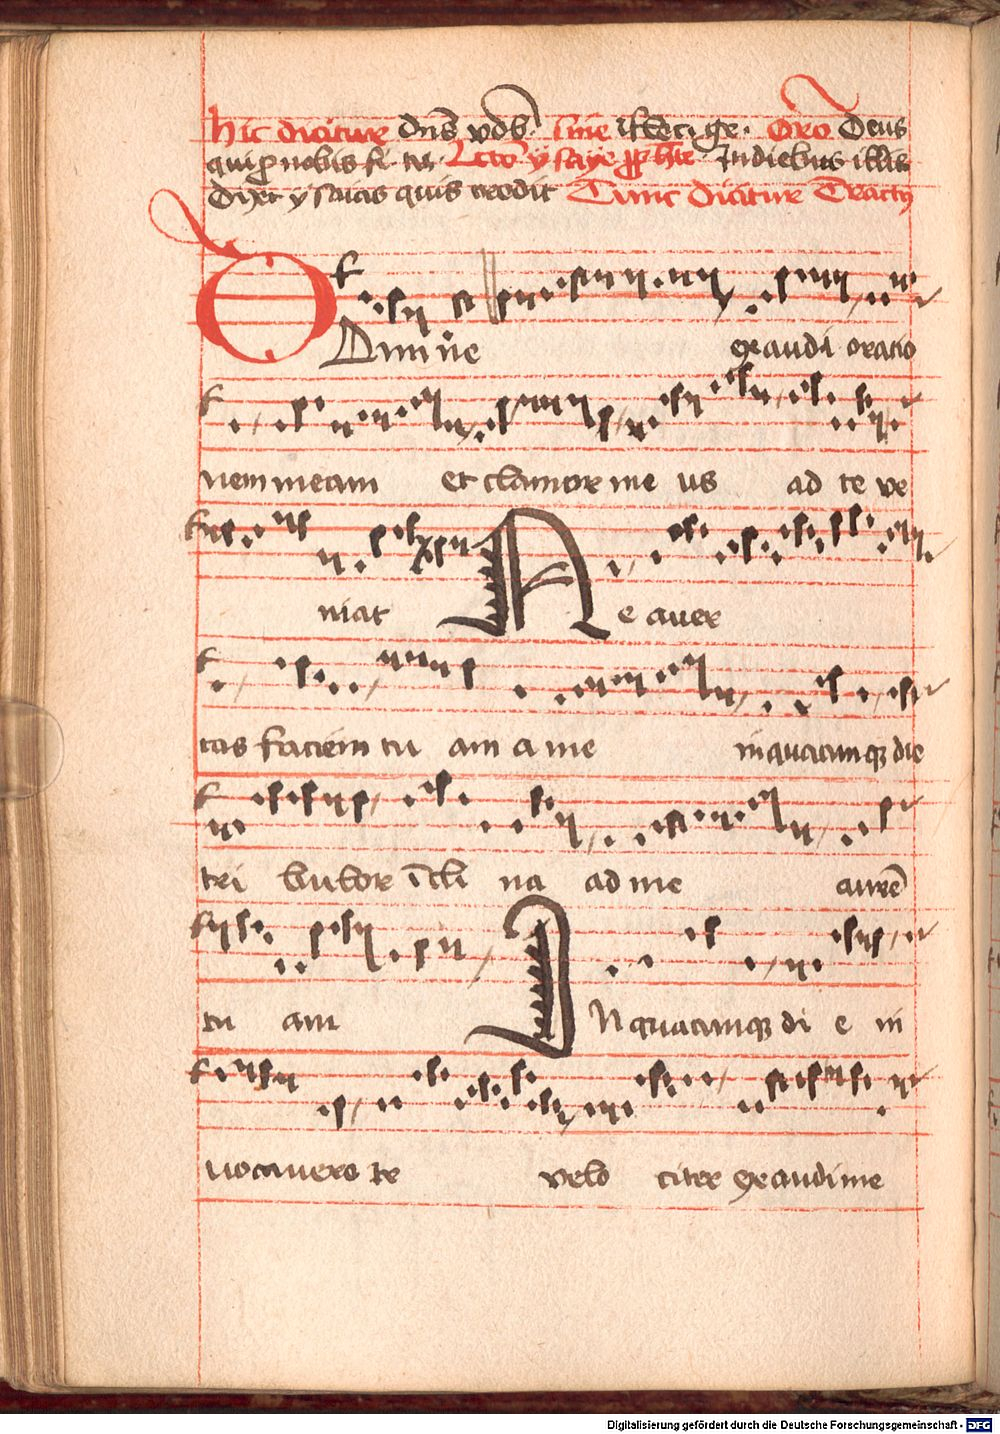 Hic dicitur dn̄s vob̄. sine flect. ge. Oro Deus
qui p nobis fi. tu. Lctō ysaye prophete. In diebus illis
Dixit ysaias quis credit Tunc dicitur Tractus
Domine exaudi oratio
nem meam et clamor me us ad te ve
niat Ne auer
tas faciem tu am a me in quacumqꝫ die
tri bulor īcli na ad me aurē
tu am In quacumqꝫ di e in
uocauero te velo citer exaudi me
Digitalisierung gefördert durch die Deutsche Forschungsgemeinschaft - DFG